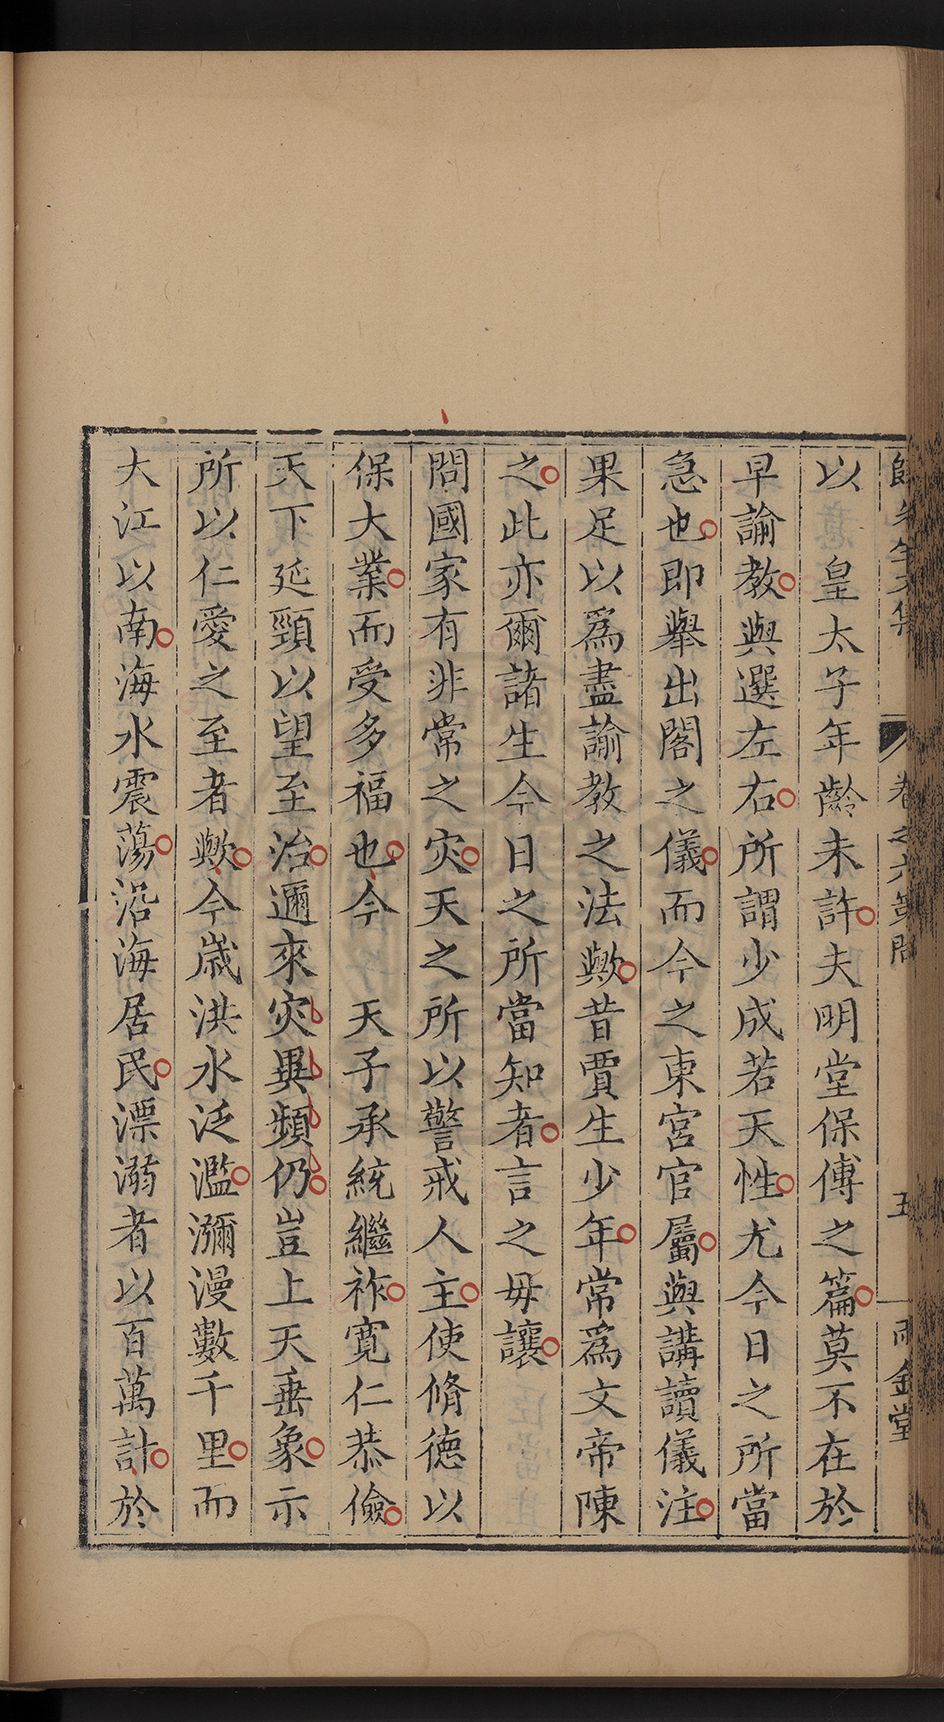 以　皇太子年齡未許夫明堂保傅之篇莫不在於
早諭教與選左右所謂少成若天性尤今日之所當
急也即舉出閣之儀而今之東宮官屬與講讀儀注
果足以爲盡諭教之法歟昔賈生少年常爲文帝陳
之此亦爾諸生今日之所當知者言之毋讓
問國家有非常之灾天之所以警戒人主使脩德以
保大業而受多福也今　天子承統繼祚寛仁恭儉
天下延頸以望至治邇來灾異頻仍豈上天垂象示
所以仁愛之至者歟今歲洪水泛濫瀰漫數千里而
大江以南海水震蕩沿海居民漂溺者以百萬計於
先生文集
卷之六策問
五
雨金堂